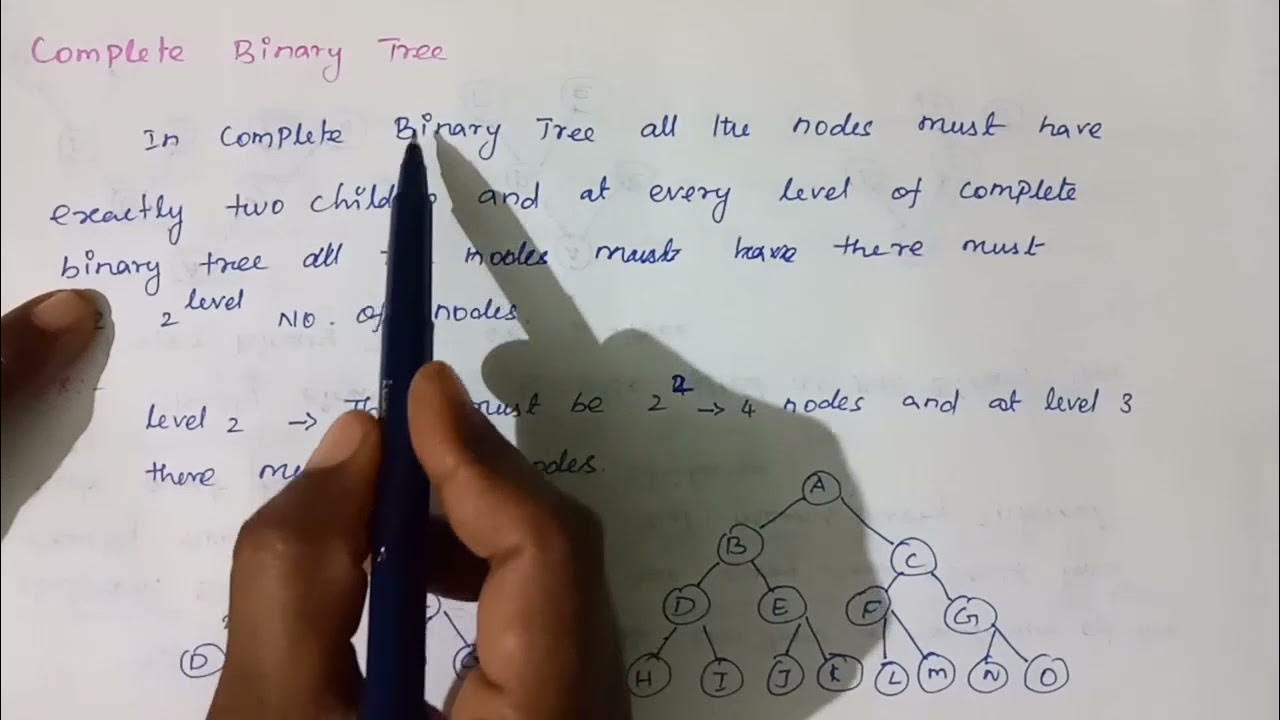 Complete Binary Tree
In Complete Binary Tree all the nodes must have
exactly two and at every level of complete
binary tree all nodes must have there must
2 level No. of nodes.
Level 2 → must be 2 2 → 4 nodes and at level 3
there
A
B C
D E F G
D H I J K L M N O